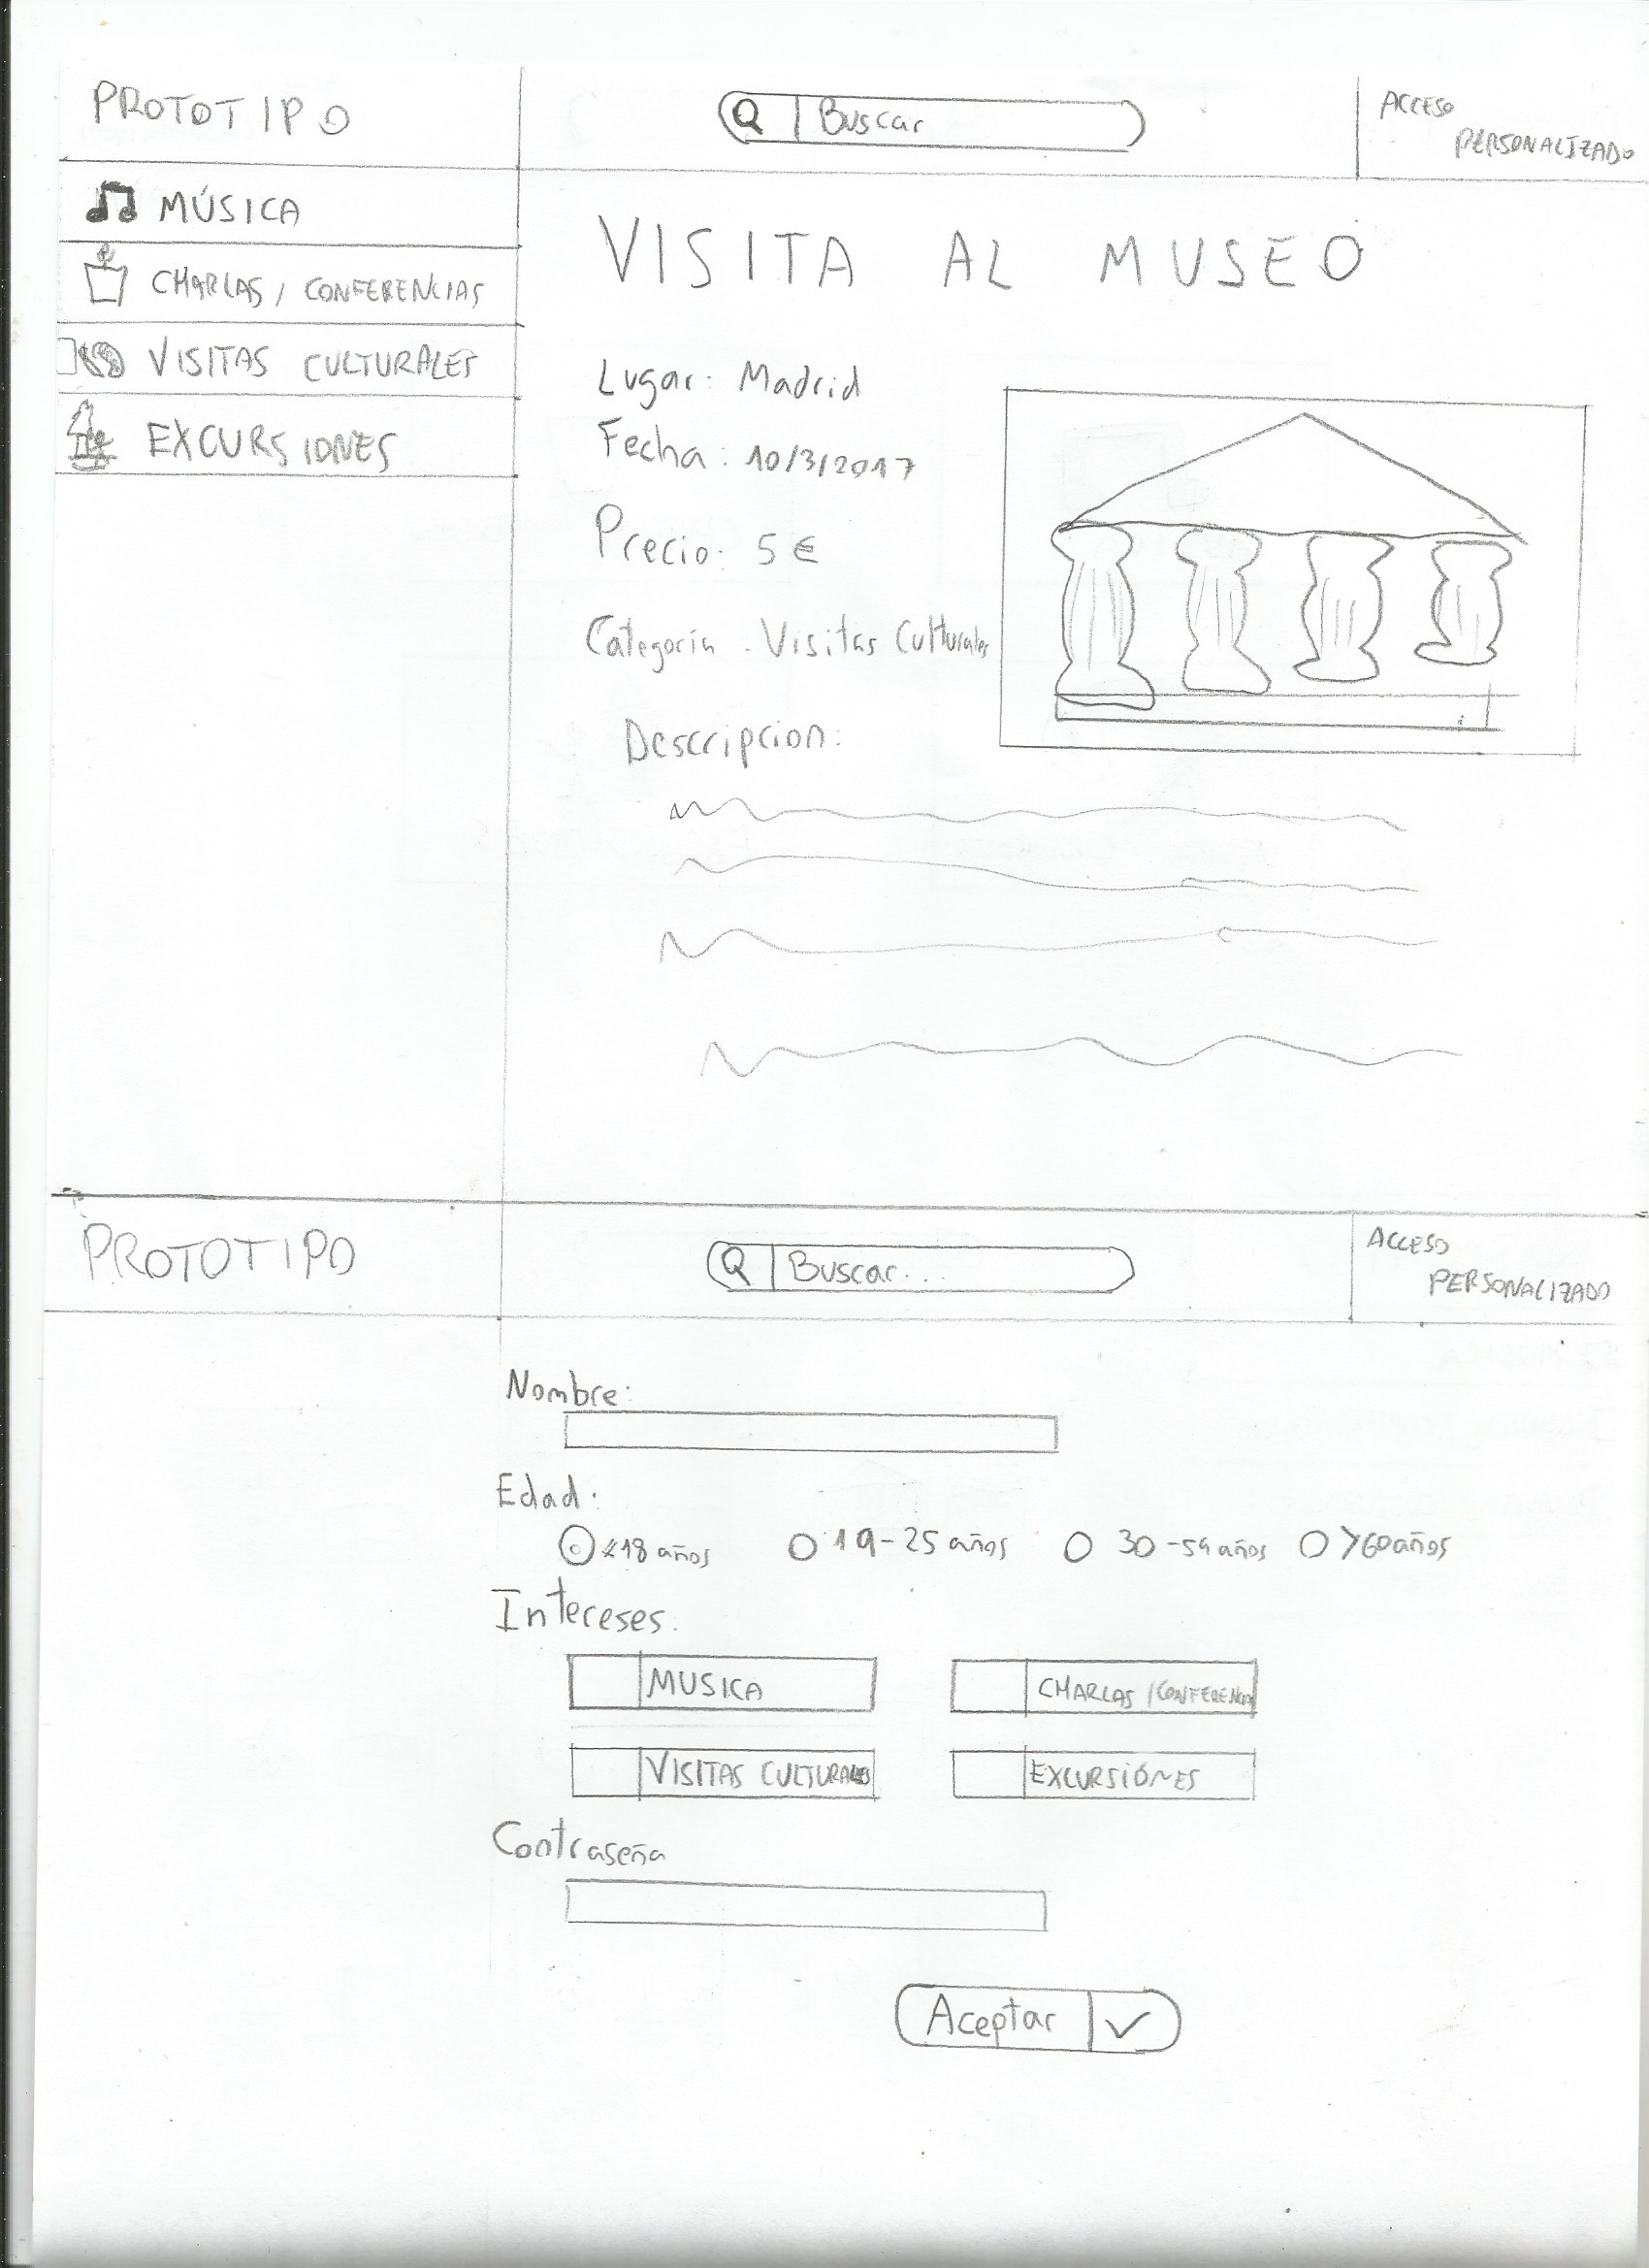 PROTOTIPO
Buscar
ACCESO
PERSONALIZADO
MÚSICA
CHARLAS / CONFERENCIAS
VISITAS CULTURALES
EXCURSIONES
VISITA AL MUSEO
Lugar: Madrid
Fecha: 10/3/2017
Precio: 5 €
Categoría . Visitas Culturales
Descripcion:
PROTOTIPO
Buscar...
ACCESO
PERSONALIZADO
Nombre:
Edad:
<18 años 19-25 años 30-59 años >60 años
Intereses.
MUSICA CHARLAS / CONFERENCIAS
VISITAS CULTURALES EXCURSIONES
Contraseña
Aceptar